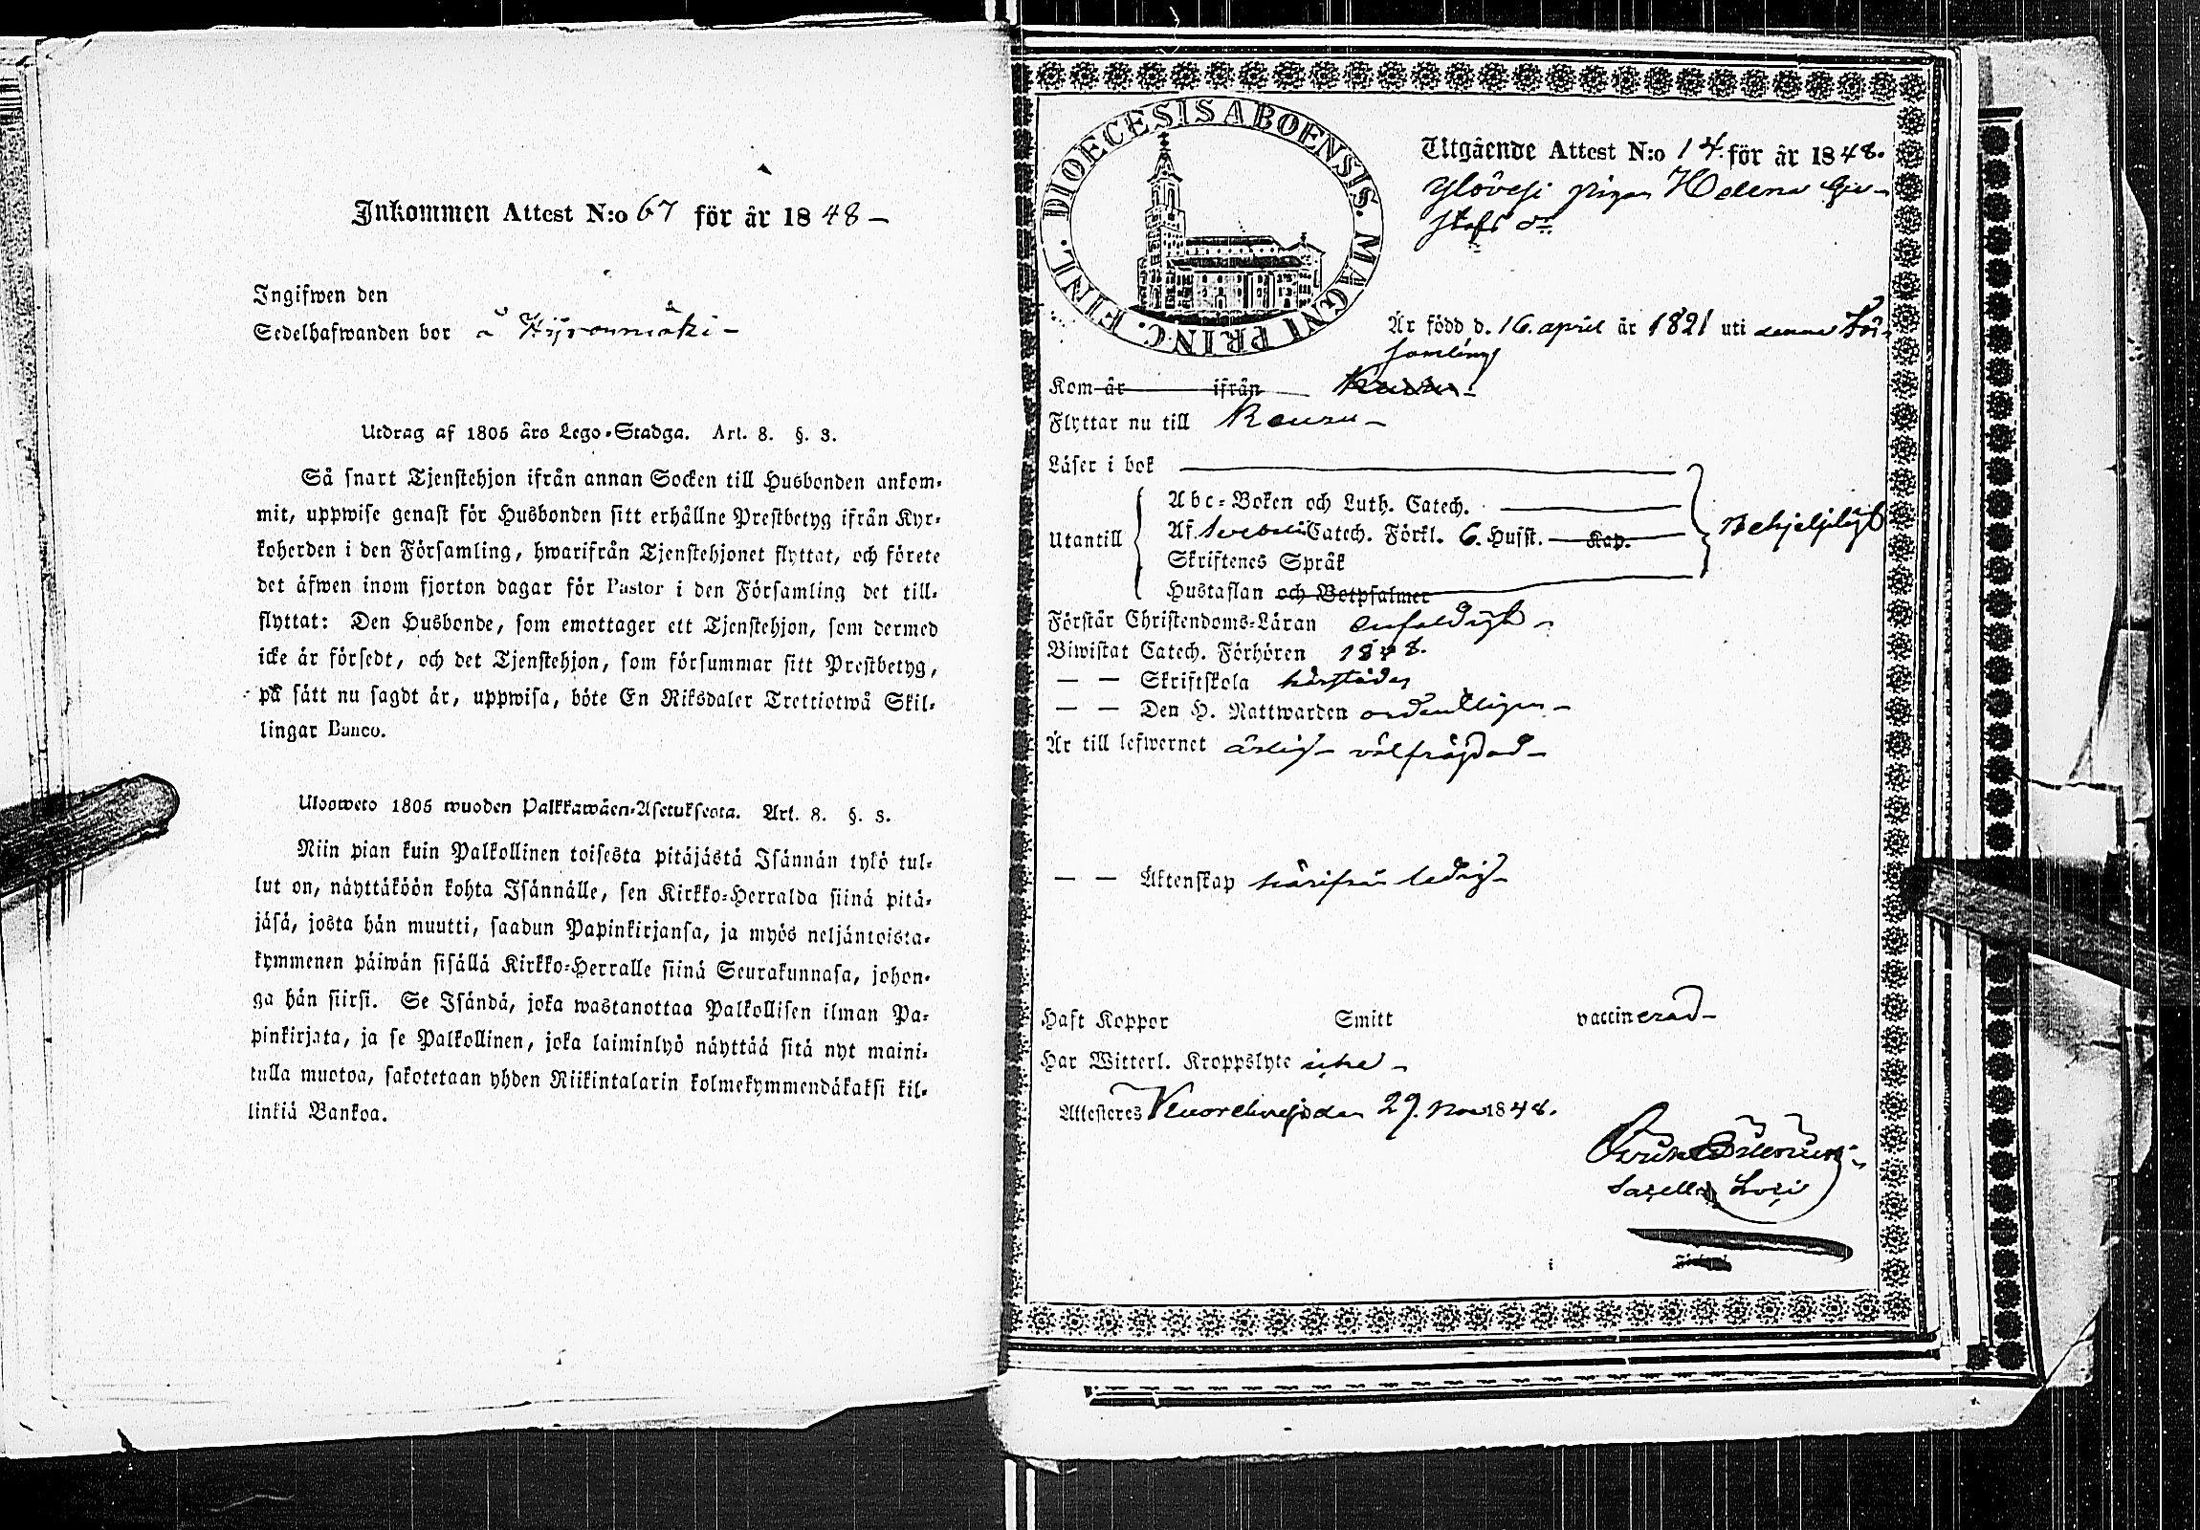 Inkommen Attest N:o 67 för år 1848 –
Ingifwen den
Sedelhafwanden bor i Kyrönmäki –
Utdrag af 1805 års Lego-Stadga. Art. 8. §. 3.
Så snart Tjenstehjon ifrån annan Socken till Husbonden ankom-
mit, uppwise genast för Husbonden sitt erhållne Prestbetyg ifrån Kyr-
koherden i den Församling, hwarifrån Tjenstehjonet flyttat, och förete
det äfwen inom fjorton dagar för Pastor i den Församling det till-
flyttat: Den Husbonde, som emottager ett Tjenstehjon, som dermed
icke är försedt, och det Tjenstehjon, som försummar sitt Prestbetyg,
på sätt nu sagdt är, uppwisa, böte En Riksdaler Trettiotwå Skil-
lingar Banco.
Ulosweto 1805 wuoden Palkkawäen-Asetuksesta. Art. 8. §. 3.
Niin pian kuin Palkollinen toisesta pitäjästä Isännän tykö tul-
lut on, näyttäköön kohta Isännälle, sen Kirkko-Herralda siinä pitä-
jäsä, josta hän muutti, saadun Papinkirjansa, ja myös neljäntoista-
kymmenen päiwän sisällä Kirkko-Herralle siinä Seurakunnasa, johon-
ga hän siirsi. Se Isändä, joka wastanottaa Palkollisen ilman Pa-
pinkirjata, ja se Palkollinen, joka laiminlyö näyttää sitä nyt maini-
tulla muotoa, sakotetaan yhden Riikintalarin kolmekymmendäkaksi kil-
linkiä Bankoa.
DIOECESIS ABOENSIS. MAGNI PRINC. FINL.
Utgående Attest N:o 14. för år 1848.
Ylövesi pigan Helena Gu-
stafs dr
Är född d. 16. april år 1821 uti denna För-
samling
Kom år ifrån
Flyttar nu till Rauru –
Läser i bok
Abc-Boken och Luth. Catech.
Utantill Af Svebelii Catech. Förkl. 6. Hufst. Kap. Behjelpligt
Skriftenes Språk
Hustaflan och Botpsalmer
Förstår Christendoms-Läran enfaldigt –
Biwistat Catech. Förhören 1848.
– – Skriftskola härstädes
– – Den H. Nattwarden ordentligen –
Är till lefwernet ärlig – välfrägdad –
– – Äktenskap härifrån ledig –
Haft Koppor Smitt vaccinerad –
Har Witterl. Kroppslyte icke –
Attesteres den 29. Nov 1848.
Sacell. Loci